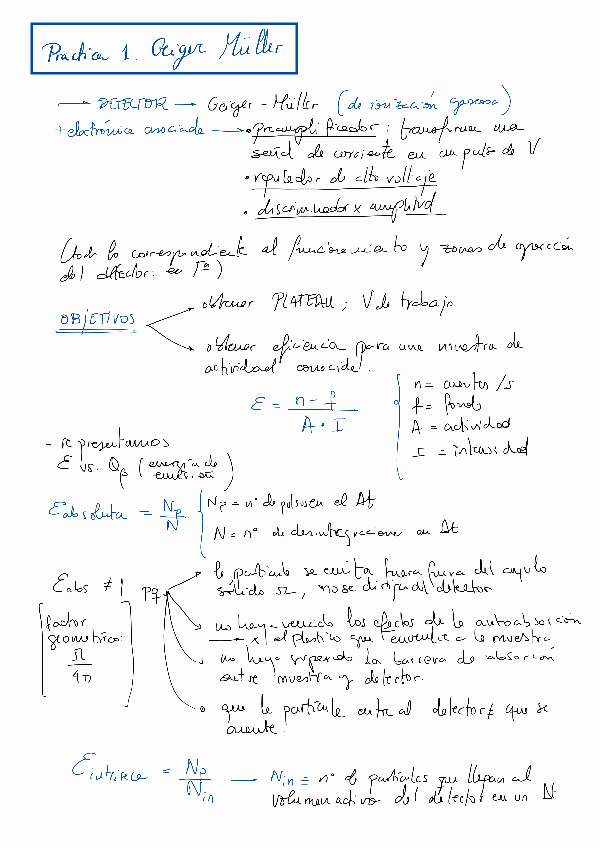 Practica 1. Geiger Müller
→ DETECTOR → Geiger-Müller (de ionización gaseosa)
+ electrónica asociada → • preamplificador: transforma una
señal de corriente en un pulso de V
• regulador de alto voltaje
• discriminador x amplitud
(todo lo correspondiente al funcionamiento y zonas de operación
del detector: en Tª)
OBJETIVOS
→ obtener PLATEAU; V de trabajo
→ obtener eficiencia para una muestra de
actividad conocida.
E = (n - f) / (A · I)
n = cuentas /s
f = fondo
A = actividad
I = intensidad
- Representamos
E vs. Qβ (energía de emisión)
Eabsoluta = Np / N
Np = nº de pulsos en el Δt
N = nº de desintegraciones en Δt
Eabs ≠ 1 pq
[factor
geometrico:
Ω / 4π]
la particula se emita fuera fuera del angulo
sólido Ω, no se dirija al detector
no haya vencido los efectos de la autoabsorción
→ x el plastico que envuelve a la muestra
no haya superado la barrera de absorción
entre muestra y detector.
que la particula entre al detector ≠ que se
cuente.
Eintrinseca = Np / Nin → Nin = nº de particulas que llegan al
volumen activo del detector en un Δt